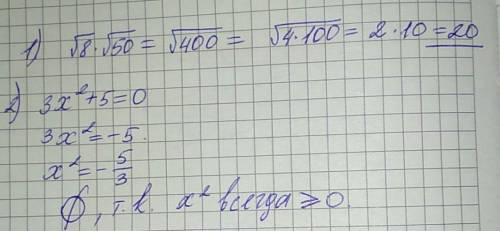 1) √8·√50 = √400 = √4·100 = 2·10 = 20
2) 3x²+5=0
3x²=-5.
x²=-5/3
∅, т.к. x² всегда ⩾0.